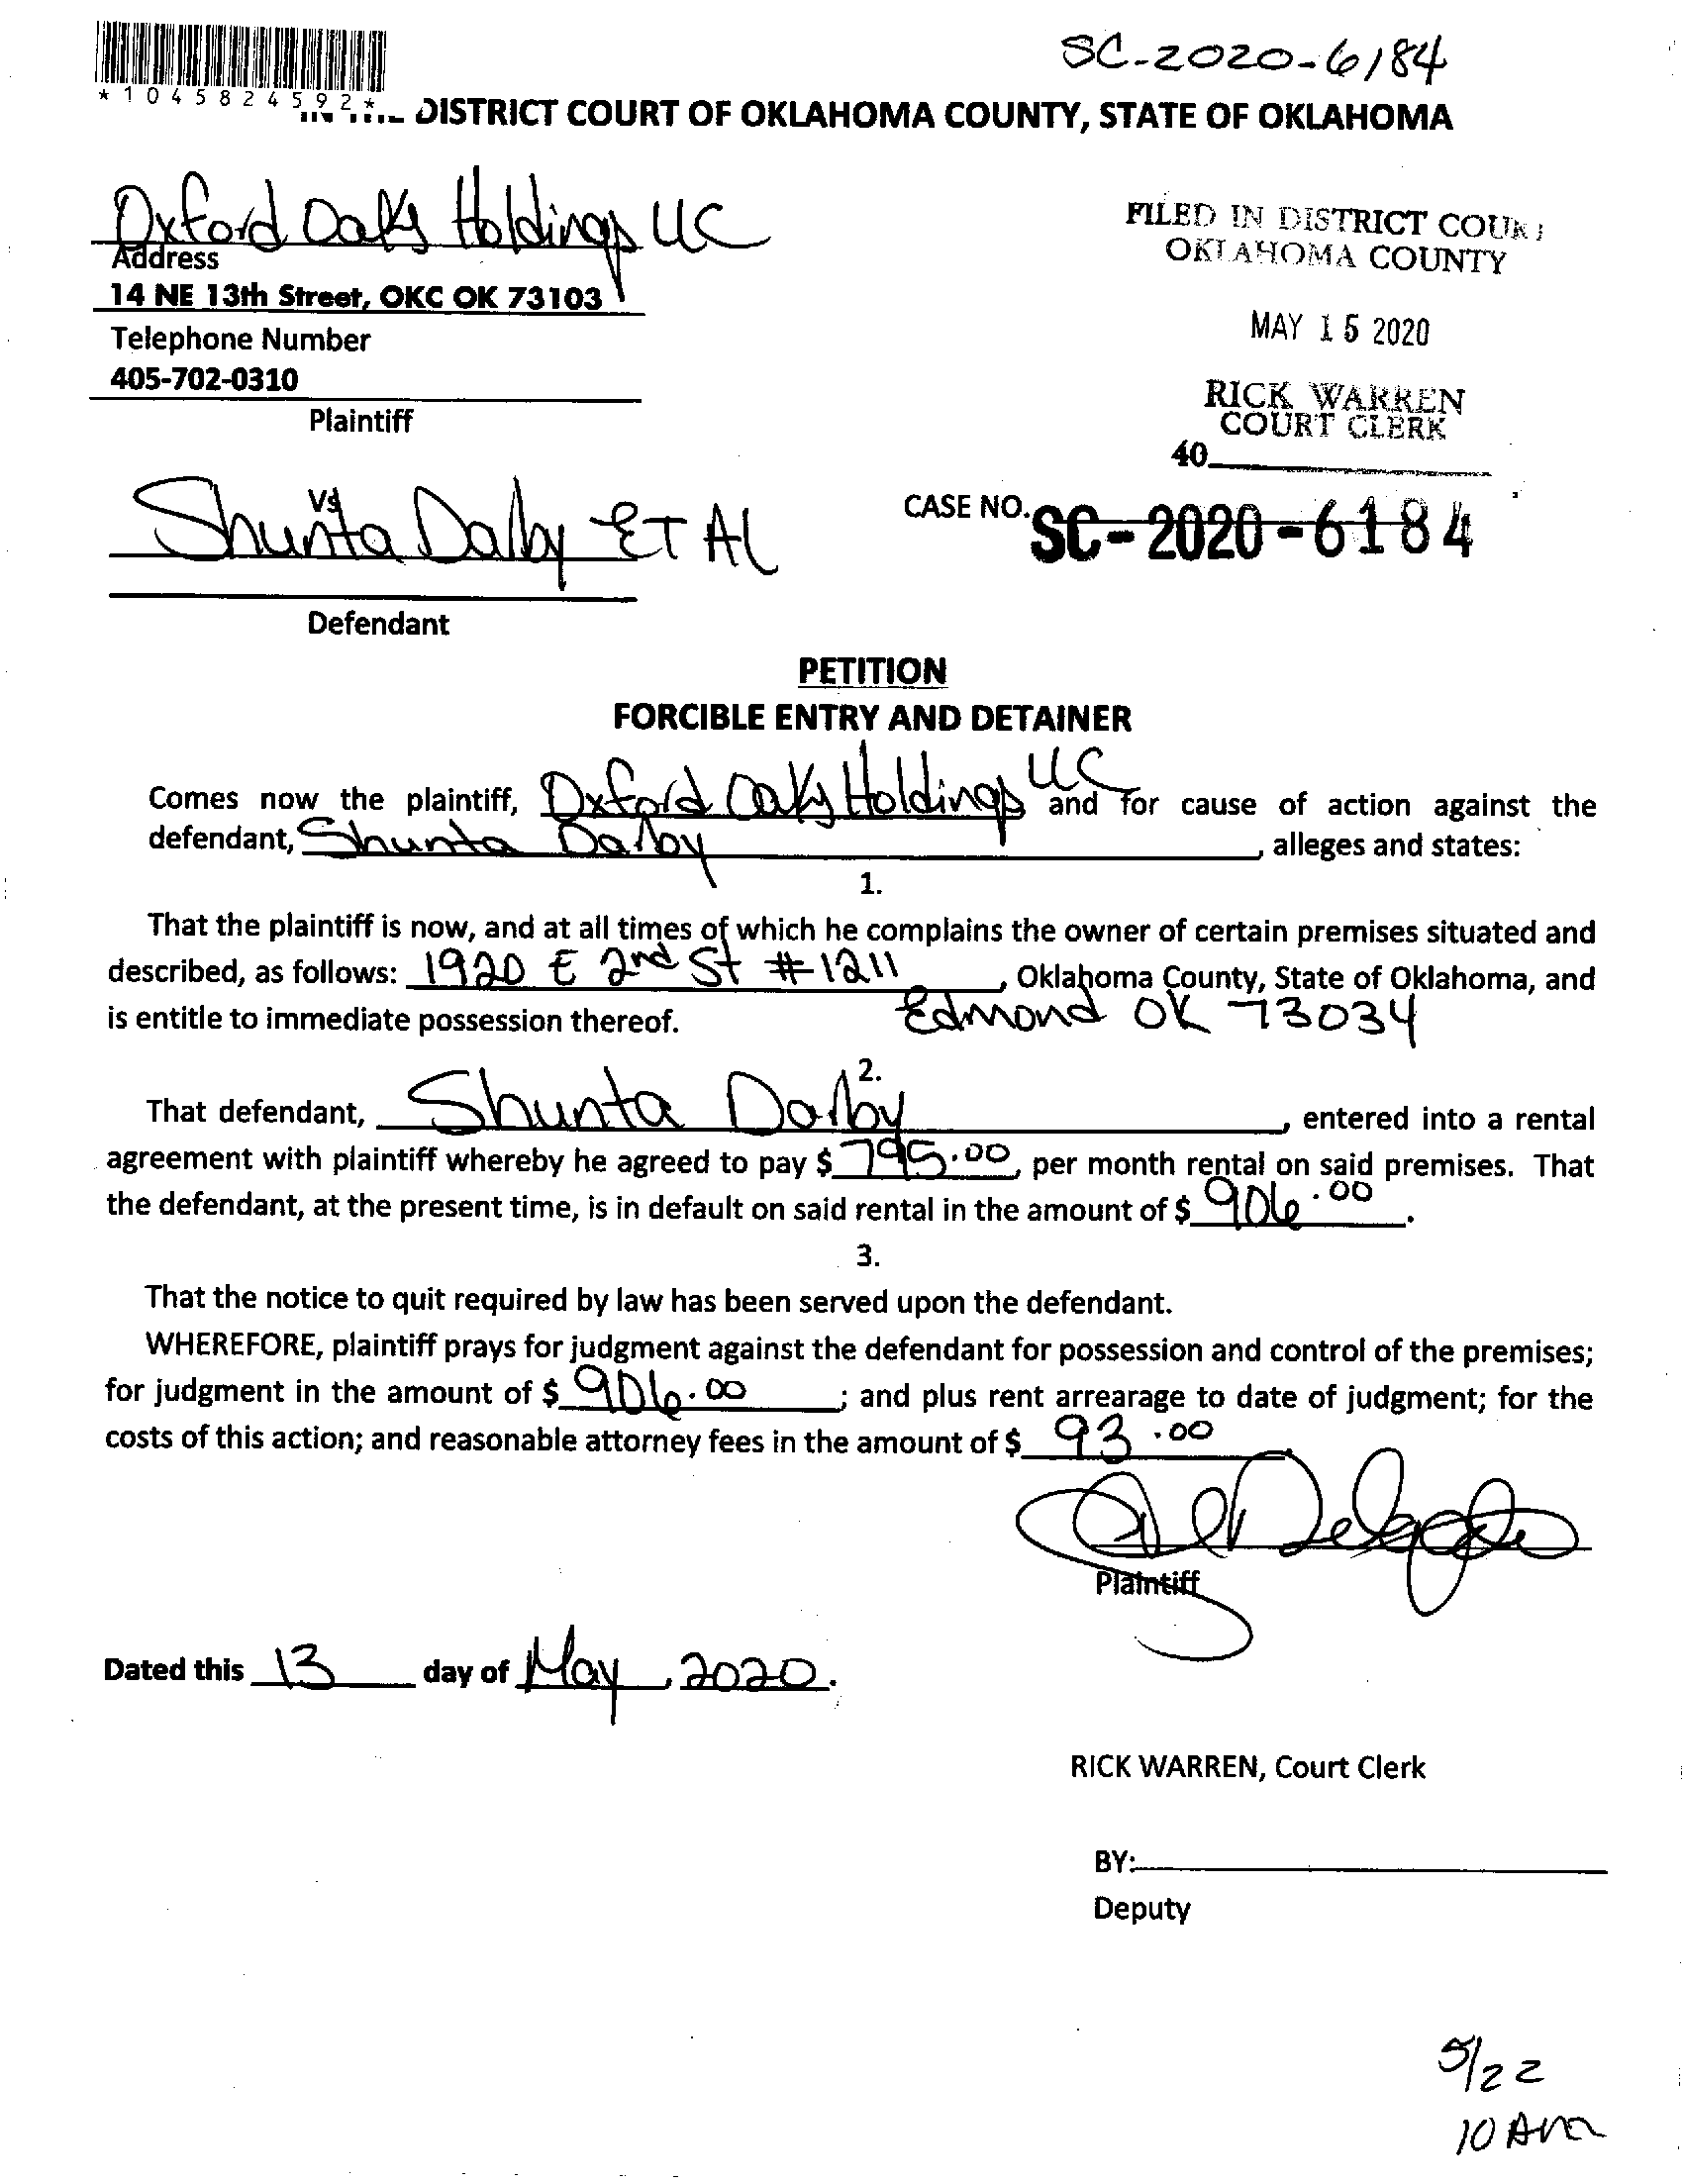 SC-2020-6184
*1045824592*
DISTRICT COURT OF OKLAHOMA COUNTY, STATE OF OKLAHOMA
Oxford Oaks Holdings LLC
Address
14 NE 13th Street, OKC OK 73103
Telephone Number
405-702-0310
Plaintiff
FILED IN DISTRICT COURT
OKLAHOMA COUNTY
MAY 15 2020
RICK WARREN
COURT CLERK
40
Vs
Shunta Dalby ET Al
CASE NO. SC-2020-6184
Defendant
PETITION
FORCIBLE ENTRY AND DETAINER
Comes now the plaintiff, Oxford Oaks Holdings LLC and for cause of action against the
defendant, Shunta Dalby, alleges and states:
1.
That the plaintiff is now, and at all times of which he complains the owner of certain premises situated and
described, as follows: 1920 E 2nd St #1211, Oklahoma County, State of Oklahoma, and
is entitle to immediate possession thereof. Edmond OK 73034
2.
That defendant, Shunta Dalby, entered into a rental
agreement with plaintiff whereby he agreed to pay $ 795.00, per month rental on said premises. That
the defendant, at the present time, is in default on said rental in the amount of $ 906.00.
3.
That the notice to quit required by law has been served upon the defendant.
WHEREFORE, plaintiff prays for judgment against the defendant for possession and control of the premises;
for judgment in the amount of $ 906.00; and plus rent arrearage to date of judgment; for the
costs of this action; and reasonable attorney fees in the amount of $ 93.00
Plaintiff
Dated this 13 day of May, 2020.
RICK WARREN, Court Clerk
BY:
Deputy
5/22
10 Am